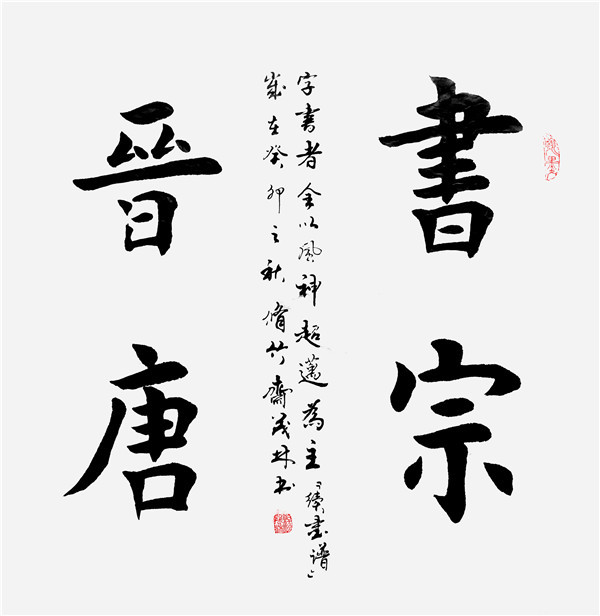 書宗
晋唐
字書者全以風神超邁為主「續書譜」
歲在癸卯之秋脩竹齋茂林书